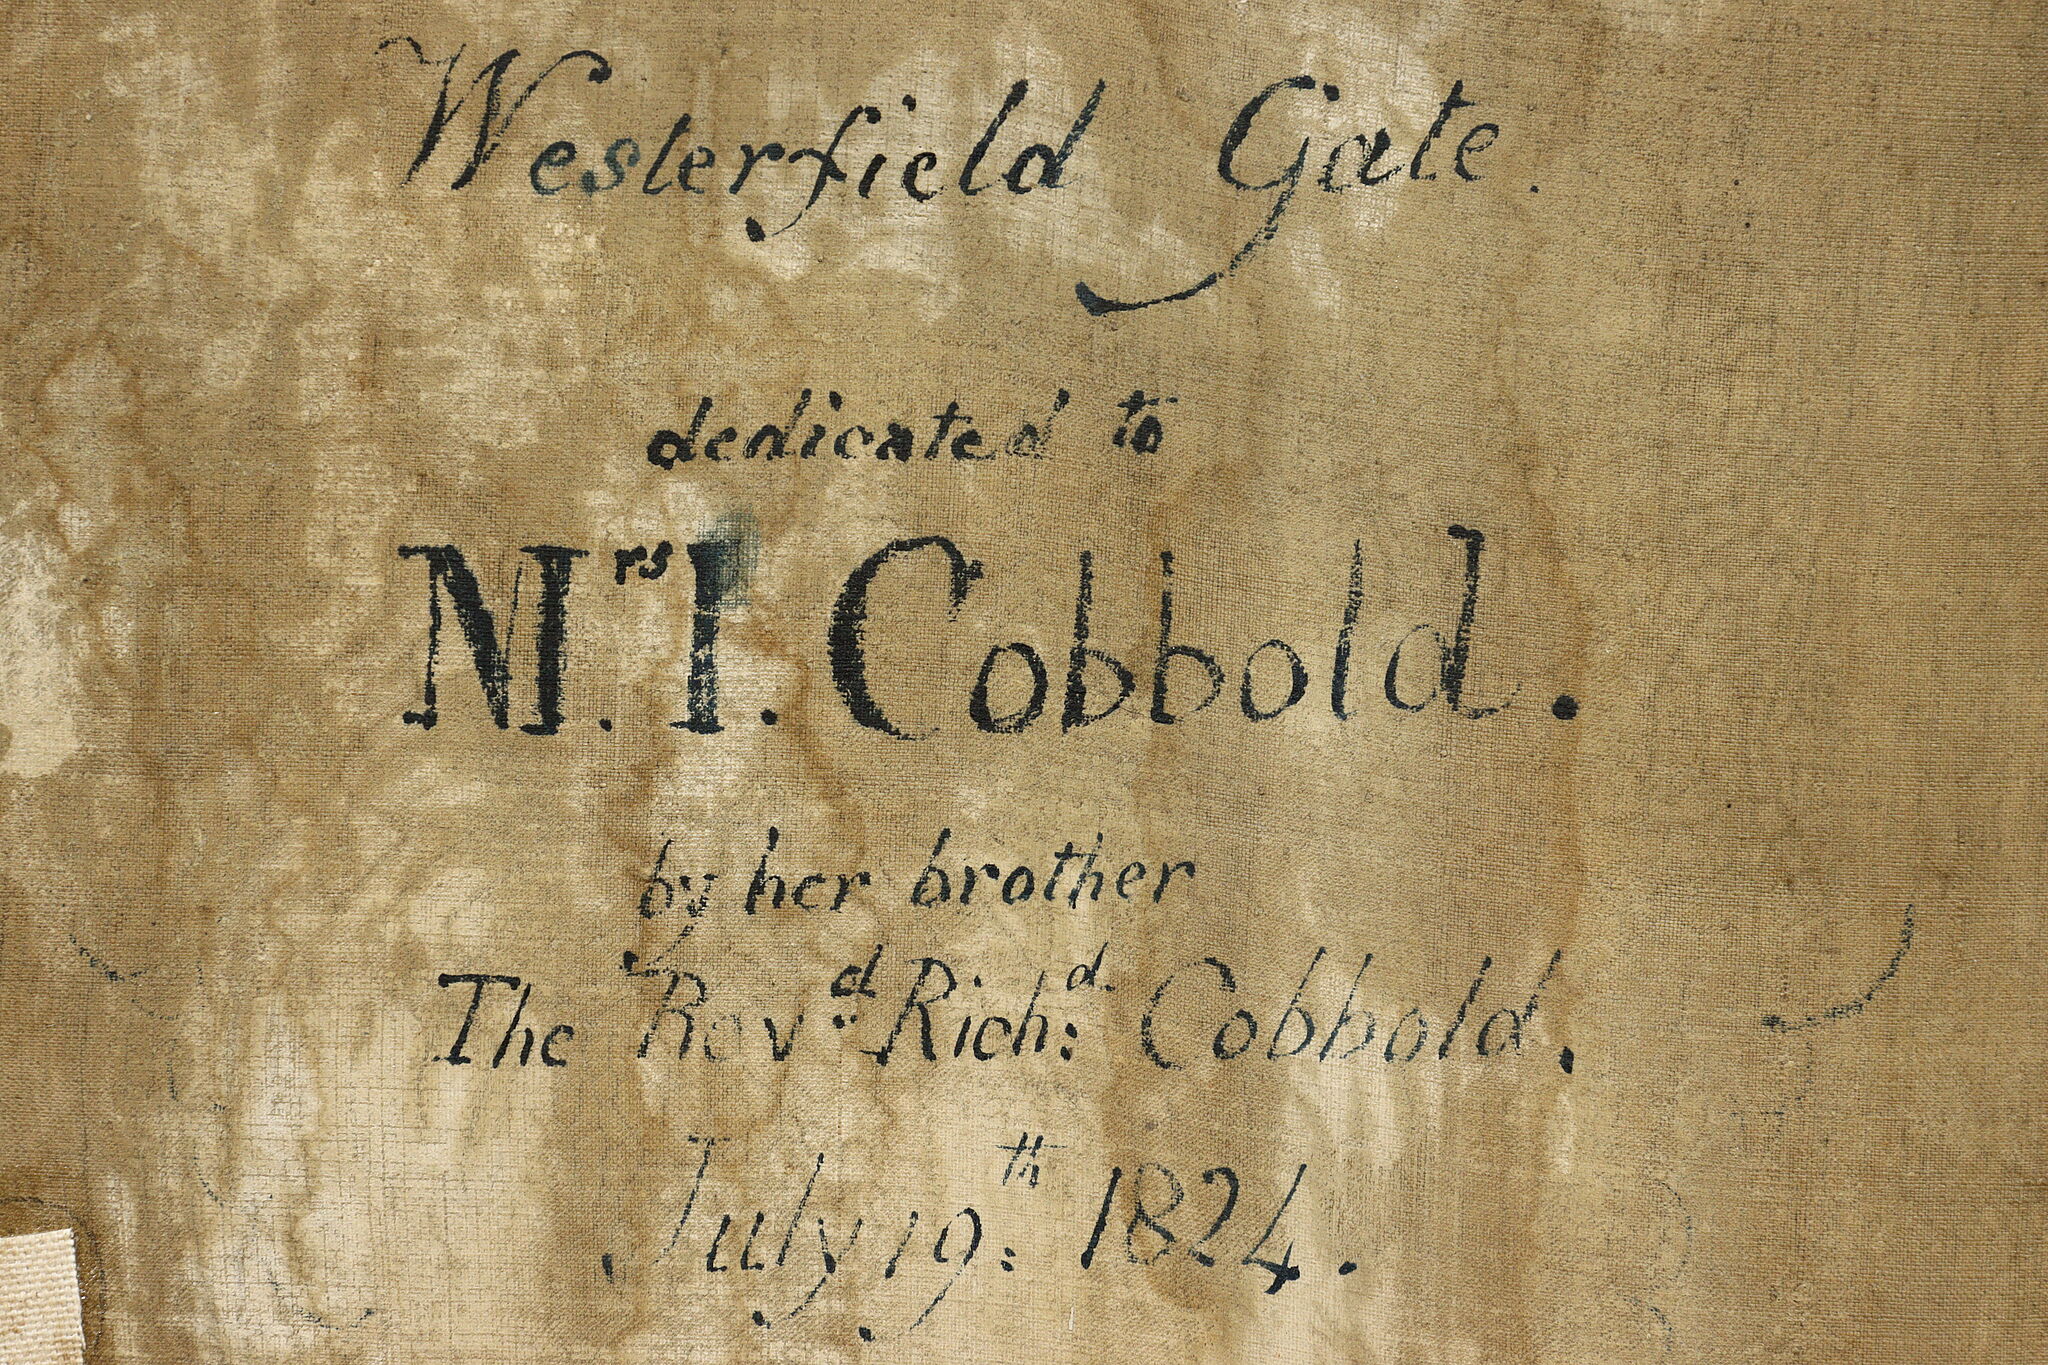 Westerfield Gate.
dedicated to
Mrs. I. Cobbold.
by her brother
The Revd. Richd: Cobbold.
July 19th: 1824.